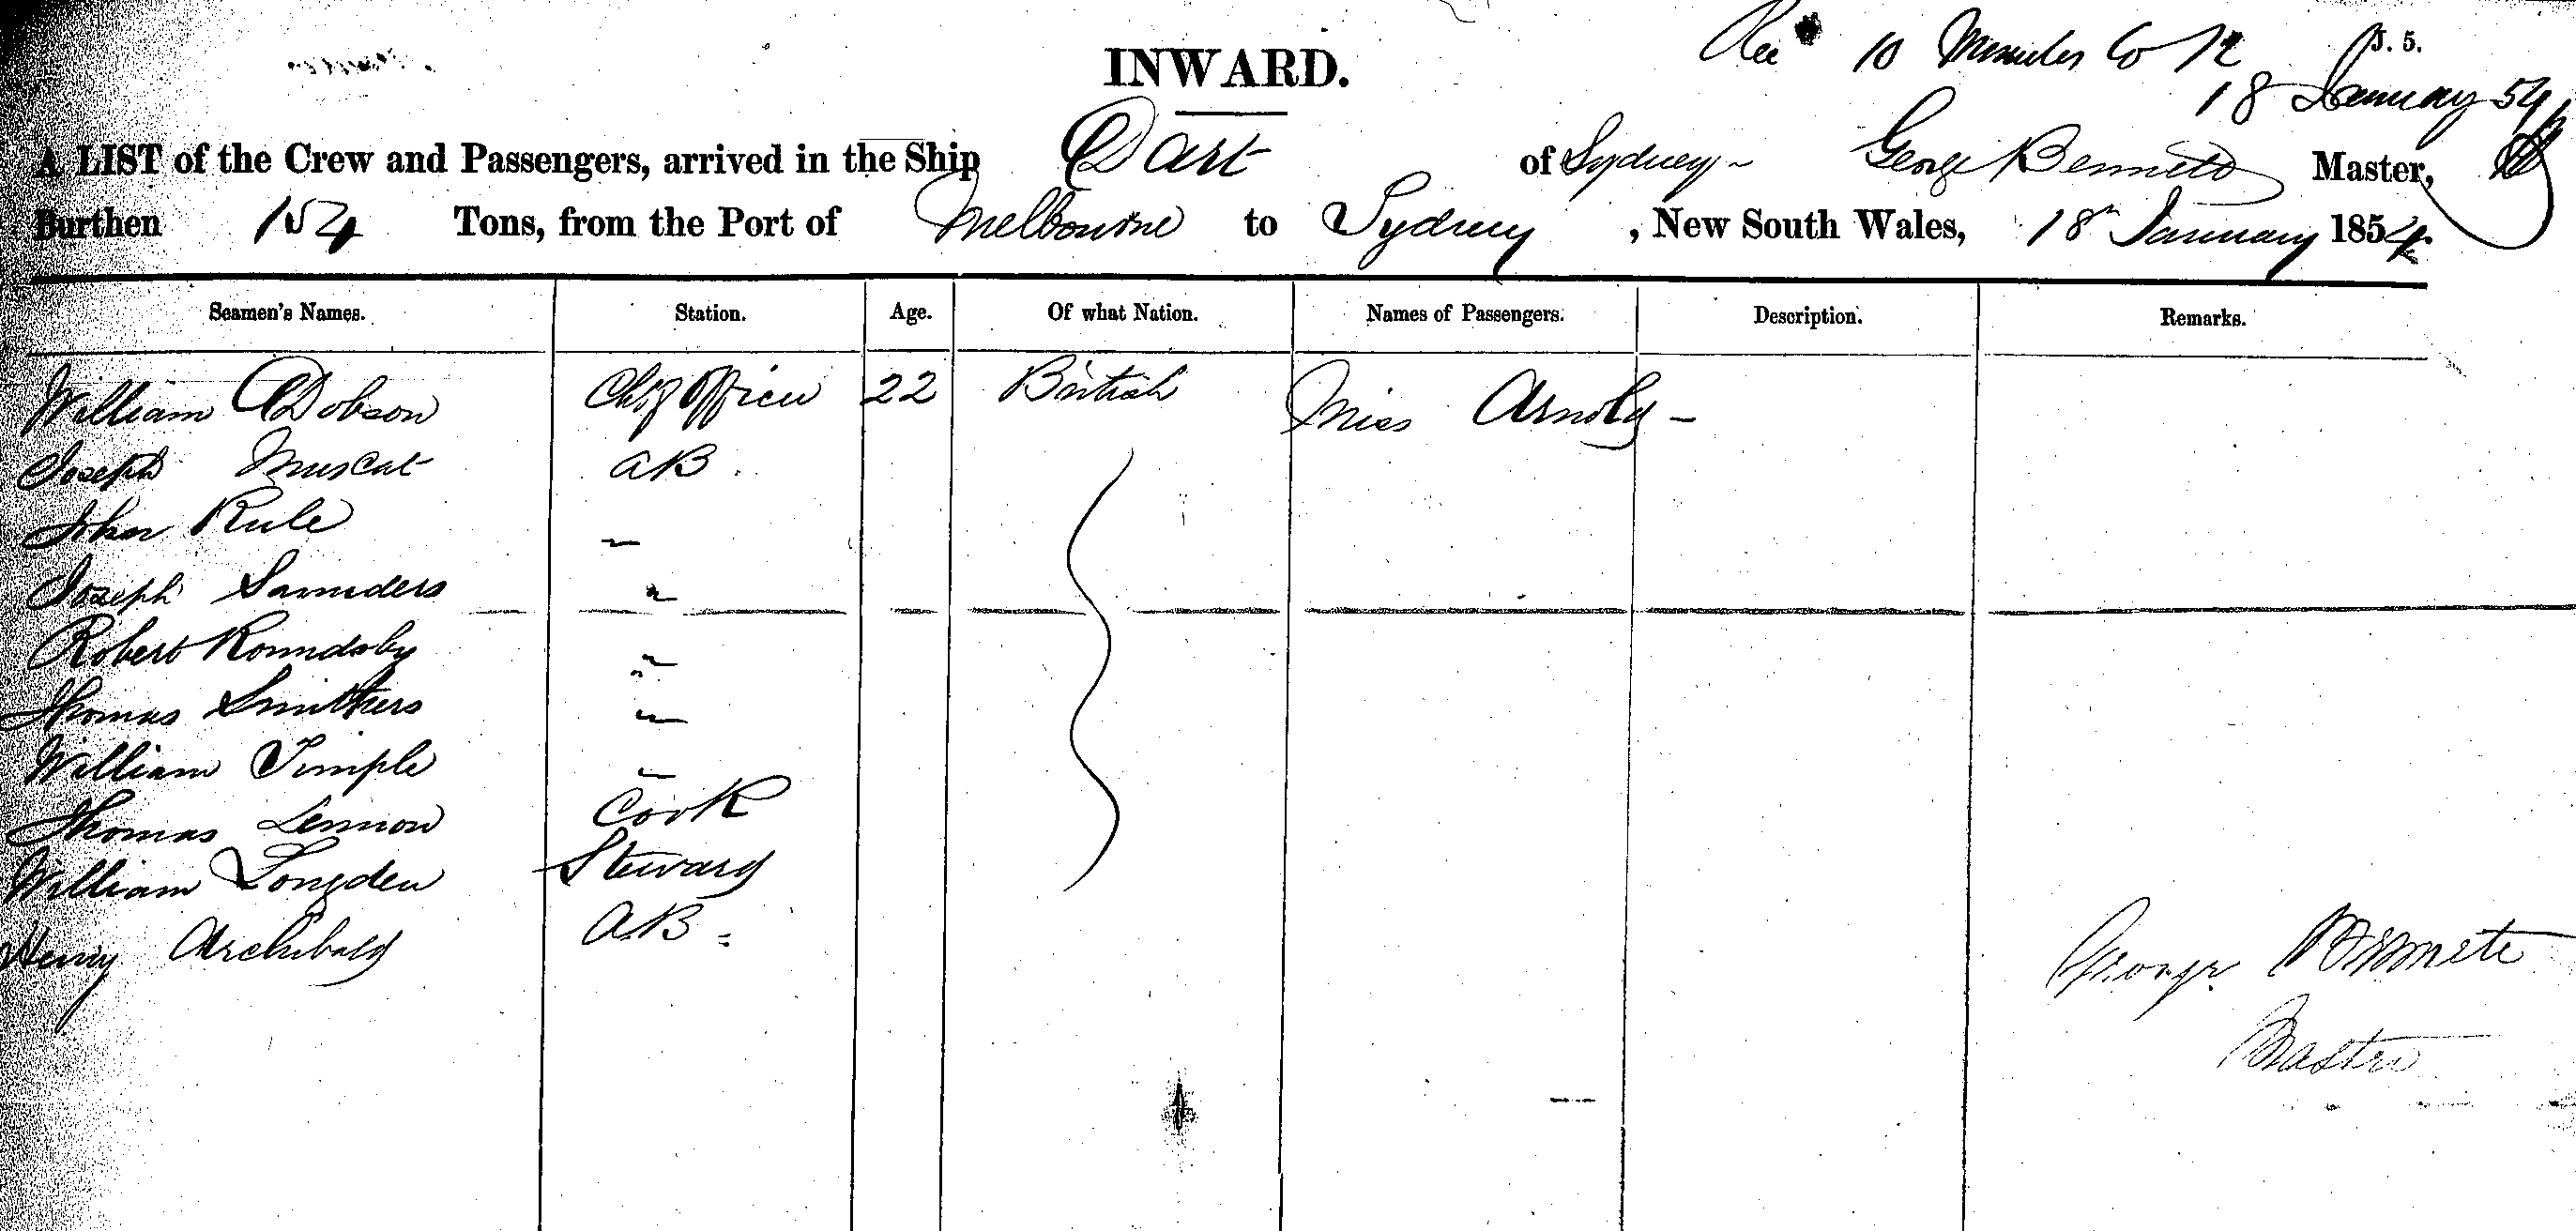 INWARD.
Rec 10 Minutes to 12 J. 5.
18 January 54
A LIST of the Crew and Passengers, arrived in the Ship Dart of Sydney George Bennett Master,
Burthen 154 Tons, from the Port of Melbourne to Sydney, New South Wales, 18 January 1854.
Seamen's Names. Station. Age. Of what Nation. Names of Passengers. Description. Remarks.
William Dobson Chf Officer 22 British Miss Arnold -
Joseph Muscat AB
John Rule
Joseph Saunders
Robert Roundsby
Thomas Smithers
William Timple
Thomas Lennon Cook
William Longden Steward
Henry Archibald AB
George Bennett
Master